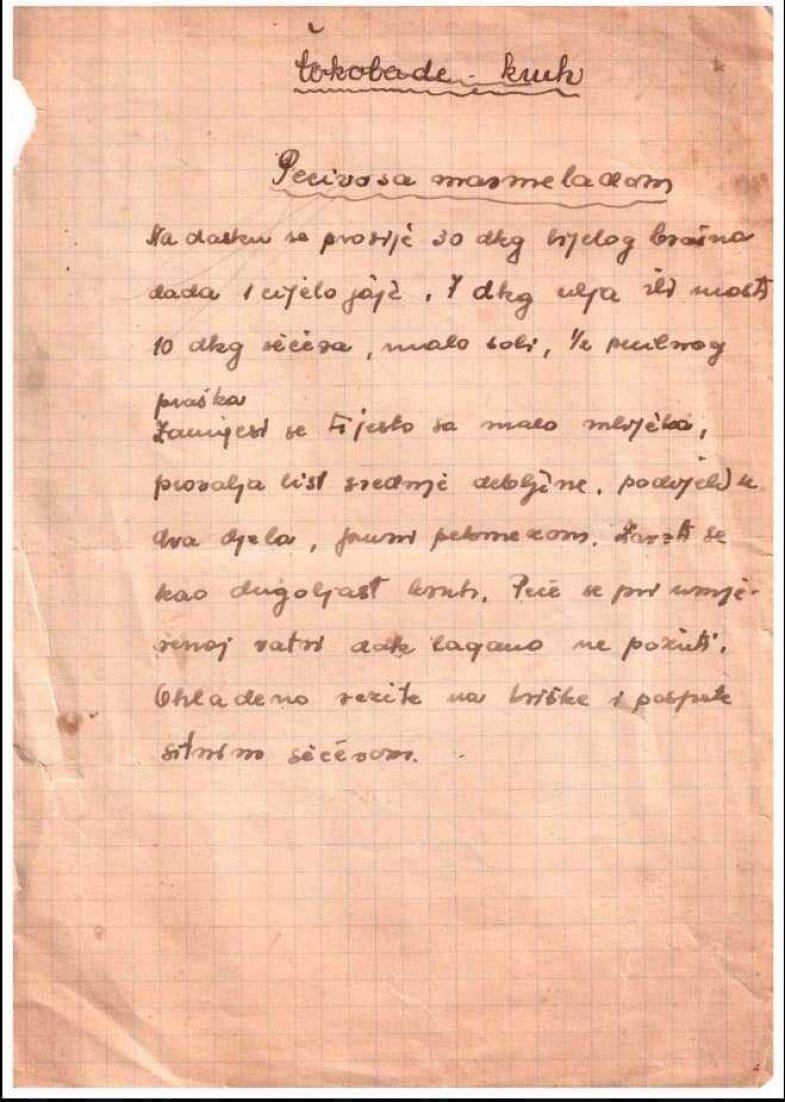 Čokolade - kruh
Pecivo sa marmeladom
Na dasku se prosije 30 dkg bijelog brašna
dada 1 cijelo jaje, 7 dkg ulja ili masti
10 dkg šećera, malo soli, 1/2 pecilnog
praška
Zamijesi se tijesto sa malo mlijeka,
provalja list srednje debljine, podijeli u
dva djela, puni pekmezom. Zavoti se
kao dugoljast kruh. Peče se pri umje-
renoj vatri dok lagano ne požuti.
Ohlađeno režite na kriške i pospite
sitnim šećerom.